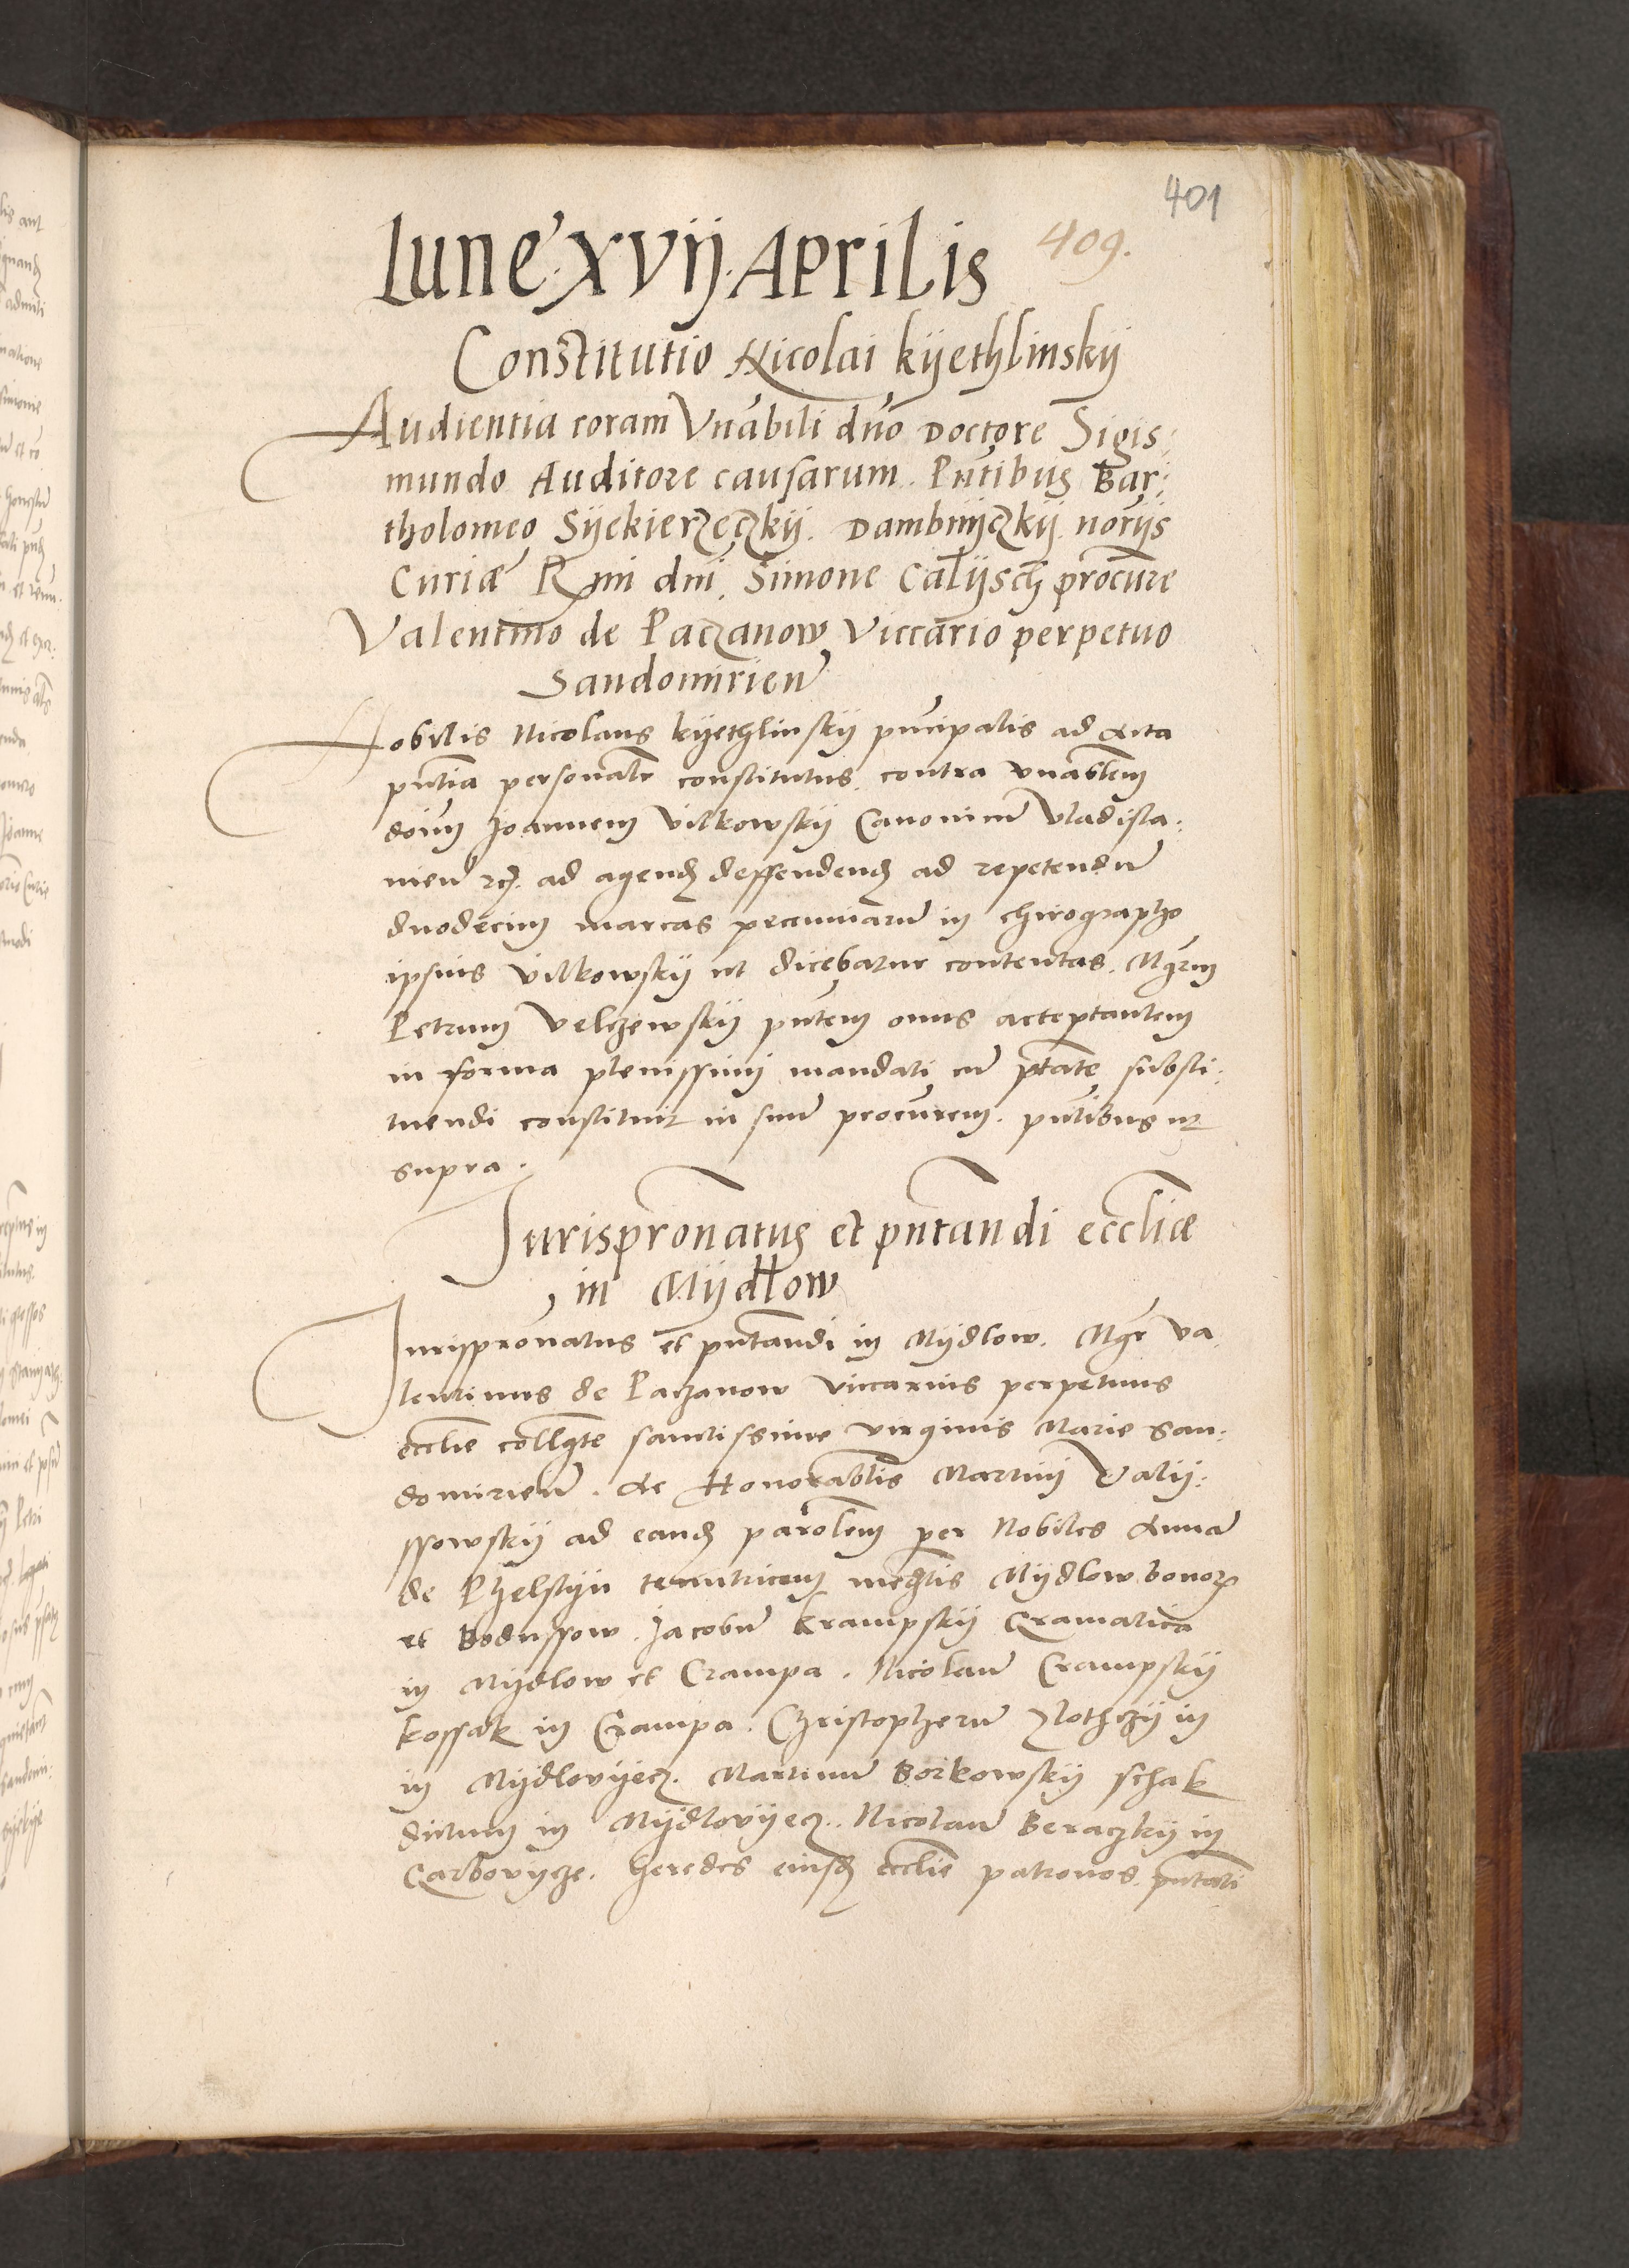 401
409.
Lune XVij Aprilis
Constitutio Nicolai kyethlinskij
Audientia coram Vnabili dno Doctore Sigis:
mundo Auditore causarum. Pntibus Bar:
tholomeo Syekierzeczkij. Dambnyczkij norijs
Curiæ Rmi dni. Simone Calijsch procure
Valentino de Paczanow Viccario perpetuo
Sandomirien
Nobilis Nicolaus kyethlinskij principalis ad Acta
pntia personalr constitutus. contra vnablem
doim Joannem Vilkowskij Canonicum Vladisla:
vien ad agend deffendend ad repetendum
duodecim marcas pecuniarum in chirographo
ipsius Vilkowskij ut dicebatur contentas. Mgrum
Petrum Velczewskij pntem onus acceptantem
in forma plenissimi mandati cum ptate substi:
tuendi constituit in suum procurem. pntibus ut
supra.
Jurispronatus et pntandi eccliæ
in Mijdlow
Jurispronatus et pntandi in Mijdlow. Mgr Va
lentinus de Paczanow viccarius perpetuus
ecclie collgte sanctissime virginis Marie San:
domirien. ac Honorablis Martinij Valij:
ssowskij ad eand parolem per Nobiles Annam
de Pzelstijn tenutricem medtis Mijdlow bonor
et Bodussow. Jacobum krampskij Gramatica
in Mijdlow et Crampa. Nicolaum Crampskij
kossak in Crampa. Christopherum Zlothczij in
in Mijdlovijecz. Martinum Borkowskij schak
dictum in Mijdlovijecz. Nicolaum Beraczkij in
Carbovycze. heredes eiusd ecclie patronos. pntati